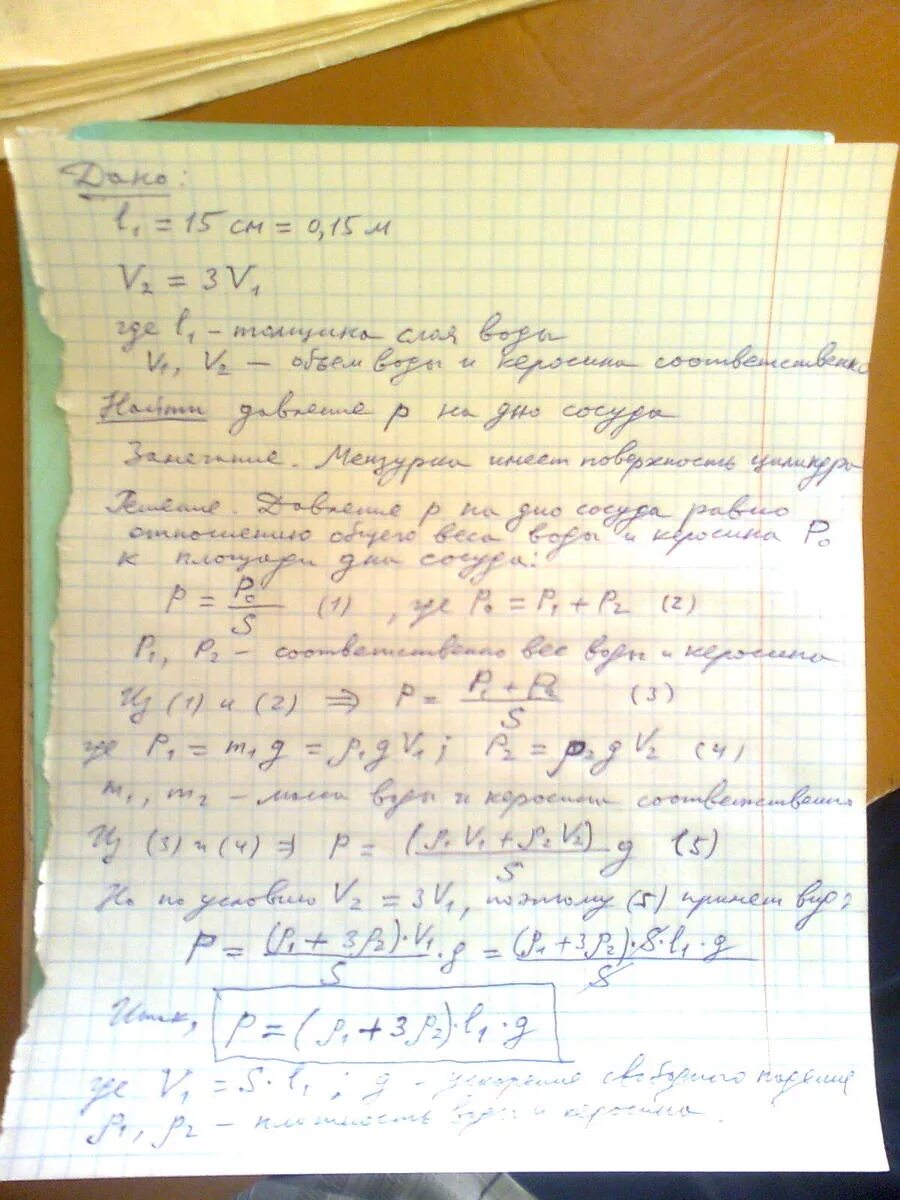 Дано:
l₁ = 15 см = 0,15 м
V₂ = 3V₁
где l₁ - толщина слоя воды
V₁, V₂ - объем воды и керосина соответственно
Найти давление p на дно сосуда
Замечание. Мензурка имеет поверхность цилиндра
Решение. Давление p на дно сосуда равно
отношению общего веса воды и керосина P₀
к площади дна сосуда:
p = P₀/S (1) , где P₀ = P₁ + P₂ (2)
P₁, P₂ - соответственно вес воды и керосина
Из (1) и (2) ⇒ p = (P₁ + P₂)/S (3)
где P₁ = m₁g = ρ₁gV₁; P₂ = ρ₂gV₂ (4)
m₁, m₂ - масса воды и керосина соответственно
Из (3) и (4) ⇒ p = (ρ₁V₁ + ρ₂V₂)/S g (5)
Но по условию V₂ = 3V₁, поэтому (5) примет вид:
p = (ρ₁ + 3ρ₂)·V₁/S · g = (ρ₁ + 3ρ₂)·S·l₁·g/S
Итак, p = (ρ₁ + 3ρ₂)·l₁·g
где V₁ = S·l₁; g - ускорение свободного падения
ρ₁, ρ₂ - плотность воды и керосина.